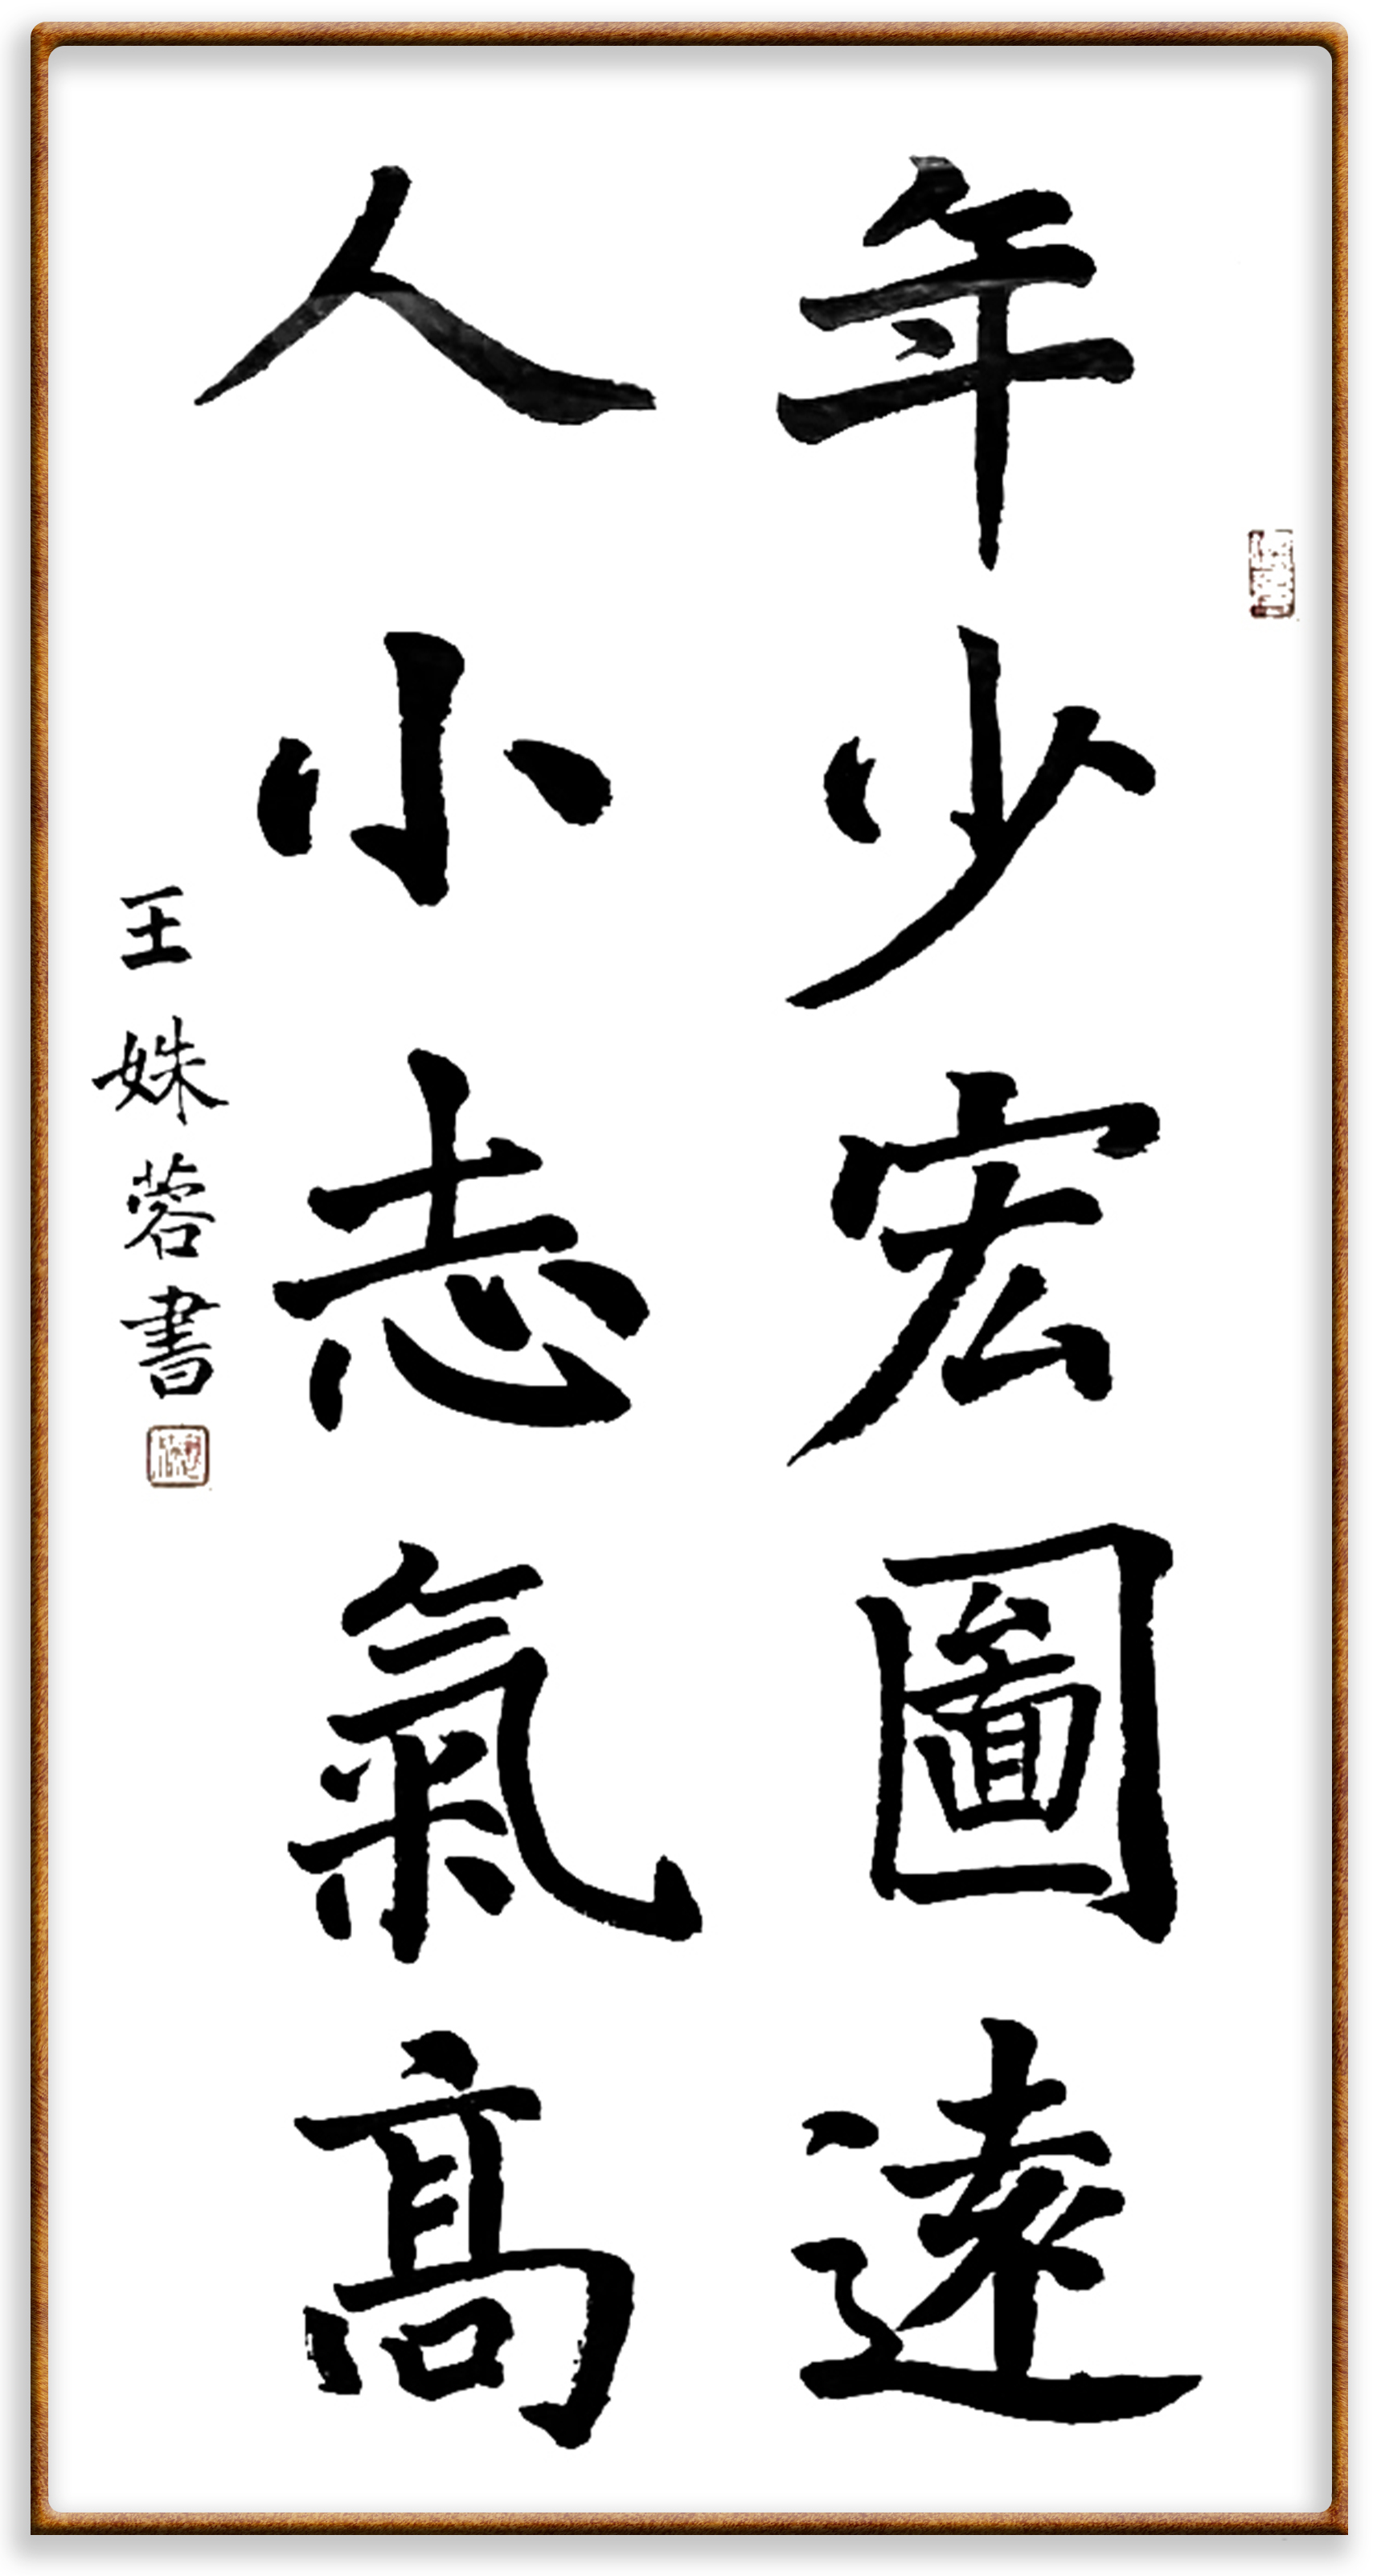 年少宏圖遠
人小志氣高
王姝蓉書